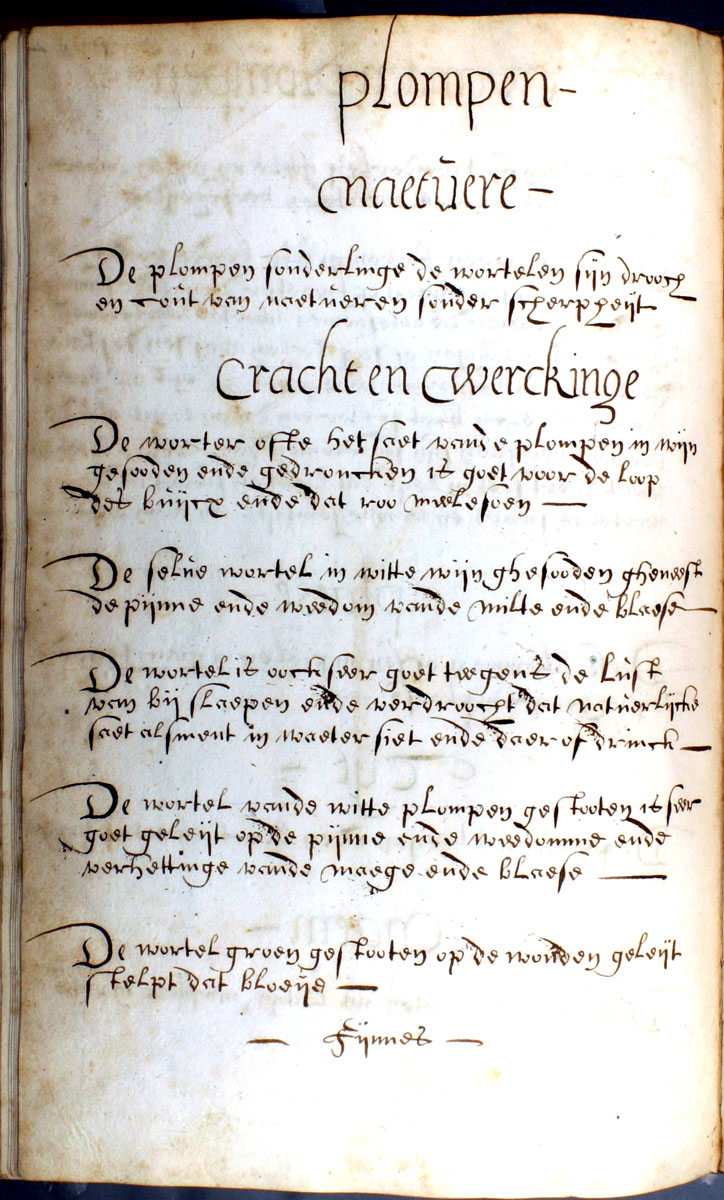 plompen –
naetuere –
De plompen sonderlinge de wortelen sijn drooch
en cout van naetueren sonder scherpheijt
Cracht en werckinge
De worter ofte het saet vande plompen in wijn
gesooden ende gedroncken is goet voor de loop
des buijcx ende dat roo meelesoen —
De selue wortel in witte wijn ghesooden gheneest
de pijnne ende weedom vande milte ende blaese
De wortel is oock seer goet teegens de lust
van bij slaepen ende verdroocht dat natuerlijcke
saet alsment in waeter siet ende daer of drinck —
De wortel vande witte plompen gestooten is seer
goet geleijt op de pijnne ende weedomme ende
verhettinge vande maege ende blaese —
De wortel groen gestooten op de wonden geleijt
stelpt dat bloeije —
— Fijnnes —